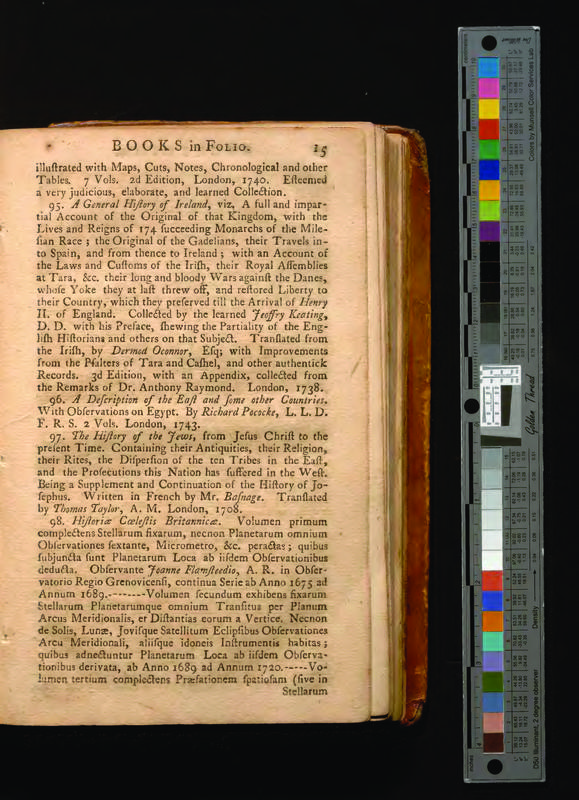 BOOKS in FOLIO. 15
illuſtrated with Maps, Cuts, Notes, Chronological and other
Tables. 7 Vols. 2d Edition, London, 1740. Eſteemed
a very judicious, elaborate, and learned Collection.
95. A General Hiſtory of Ireland, viz, A full and impar-
tial Account of the Original of that Kingdom, with the
Lives and Reigns of 174 ſucceeding Monarchs of the Mile-
ſian Race ; the Original of the Gadelians, their Travels in-
to Spain, and from thence to Ireland ; with an Account of
the Laws and Cuſtoms of the Iriſh, their Royal Aſſemblies
at Tara, &c. their long and bloody Wars againſt the Danes,
whoſe Yoke they at laſt threw off, and reſtored Liberty to
their Country, which they preſerved till the Arrival of Henry
II. of England. Collected by the learned Jeoffry Keating,
D. D. with his Preface, ſhewing the Partiality of the Eng-
liſh Hiſtorians and others on that Subject. Tranſlated from
the Iriſh, by Dermod Oconnor, Eſq; with Improvements
from the Pſalters of Tara and Caſhel, and other authentick
Records. 3d Edition, with an Appendix, collected from
the Remarks of Dr. Anthony Raymond. London, 1738.
96. A Deſcription of the Eaſt and ſome other Countries.
With Obſervations on Egypt. By Richard Pococke, L. L. D.
F. R. S. 2 Vols. London, 1743.
97. The Hiſtory of the Jews, from Jeſus Chriſt to the
preſent Time. Containing their Antiquities, their Religion,
their Rites, the Diſperſion of the ten Tribes in the Eaſt,
and the Proſecutions this Nation has ſuffered in the Weſt.
Being a Supplement and Continuation of the Hiſtory of Jo-
ſephus. Written in French by Mr. Baſnage. Tranſlated
by Thomas Taylor, A. M. London, 1708.
98. Hiſtoriæ Cœleſtis Britannicæ. Volumen primum
complectens Stellarum fixarum, necnon Planetarum omnium
Obſervationes ſextante, Micrometro, &c. peractas; quibus
ſubjuncta ſunt Planetarum Loca ab iiſdem Obſervationibus
deducta. Obſervante Joanne Flamſteedio, A. R. in Obſer-
vatorio Regio Grenovicenſi, continua Serie ab Anno 1675 ad
Annum 1689.--------Volumen ſecundum exhibens fixarum
Stellarum Planetarumque omnium Tranſitus per Planum
Arcus Meridionalis, et Diſtantias eorum a Vertice. Necnon
de Solis, Lunæ, Joviſque Satellitum Eclipſibus Obſervationes
Arcu Meridionali, aliiſque idoneis Inſtrumentis habitas ;
quibus adnectuntur Planetarum Loca ab iiſdem Obſerva-
tionibus derivata, ab Anno 1689 ad Annum 1720.-----Vo-
lumen tertium complectens Præfationem ſpatioſam (ſive in
Stellarum
Colors by Munsell Color Services Lab
Golden Thread
Density
D50 Illuminant, 2 degree observer
centimeters
inches